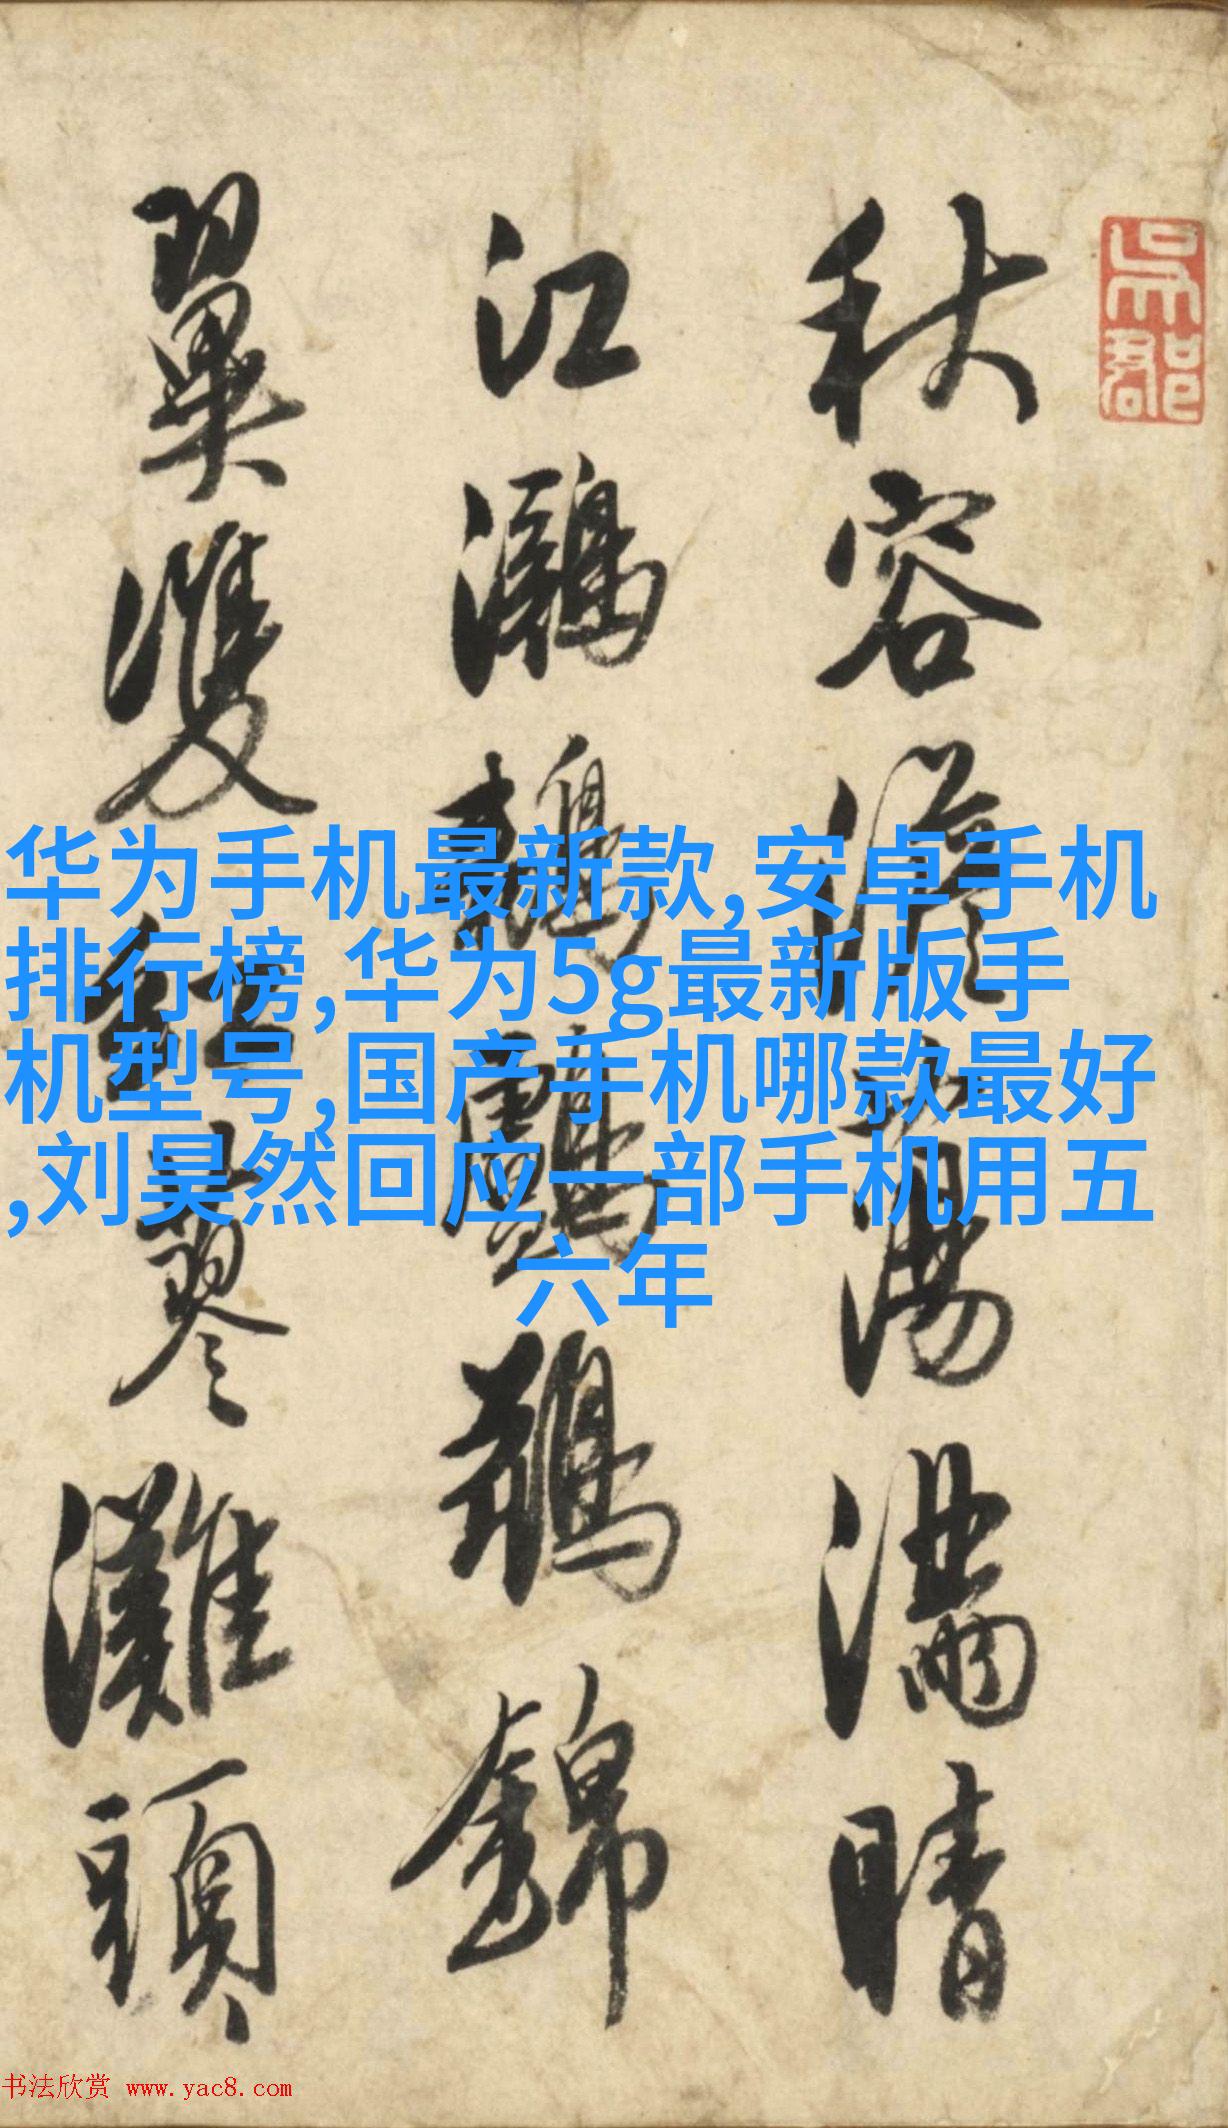 吳郡
秋容澹蕩滿晴
江鸂鶒鸊鵜錦
翼雙紅蓼灘頭
华为手机最新款,安卓手机
排行榜,华为5g最新版手
机型号,国产手机哪款最好
,刘昊然回应一部手机用五
六年
书法欣赏 www.yac8.com